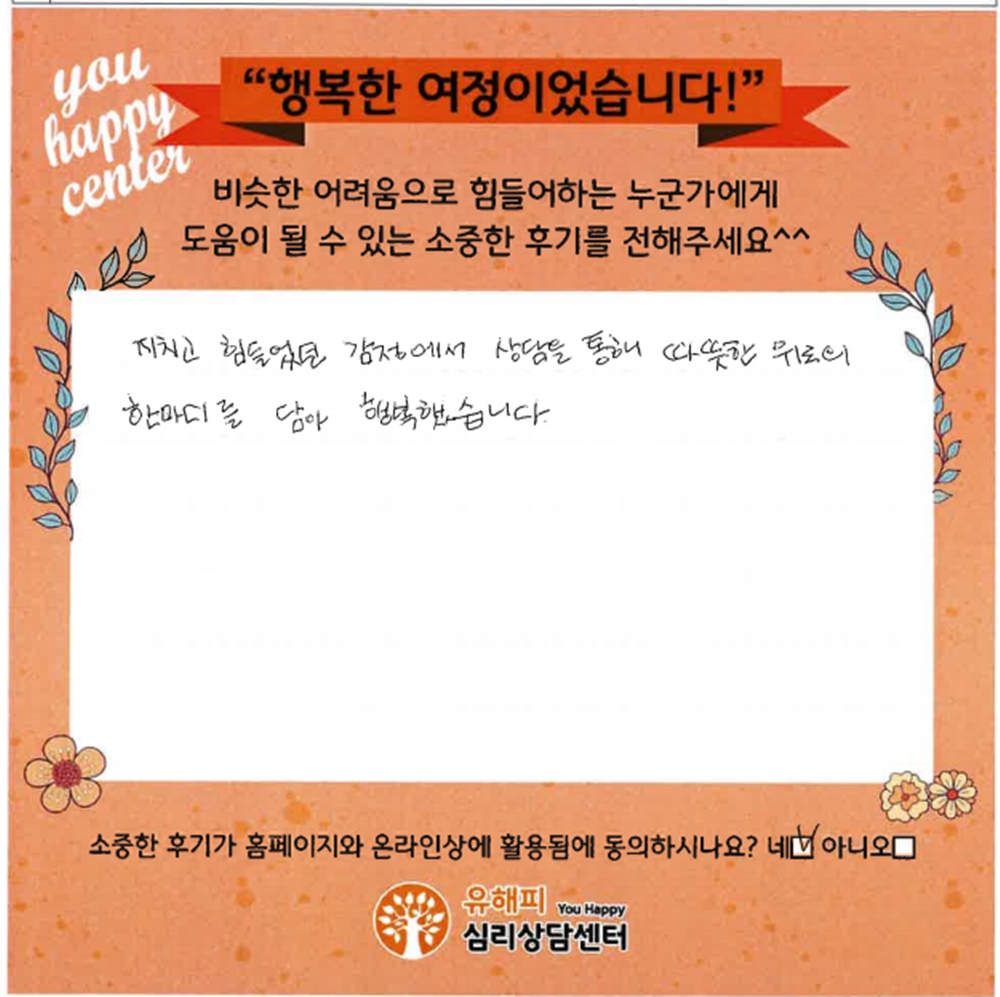 you
happy
center
“행복한 여정이었습니다!”
비슷한 어려움으로 힘들어하는 누군가에게
도움이 될 수 있는 소중한 후기를 전해주세요^^
지치고 힘들었던 감정에서 상담을 통해 따뜻한 위로의
한마디를 담아 행복했습니다.
소중한 후기가 홈페이지와 온라인상에 활용됨에 동의하시나요? 네☑ 아니오☐
유해피 You Happy
심리상담센터